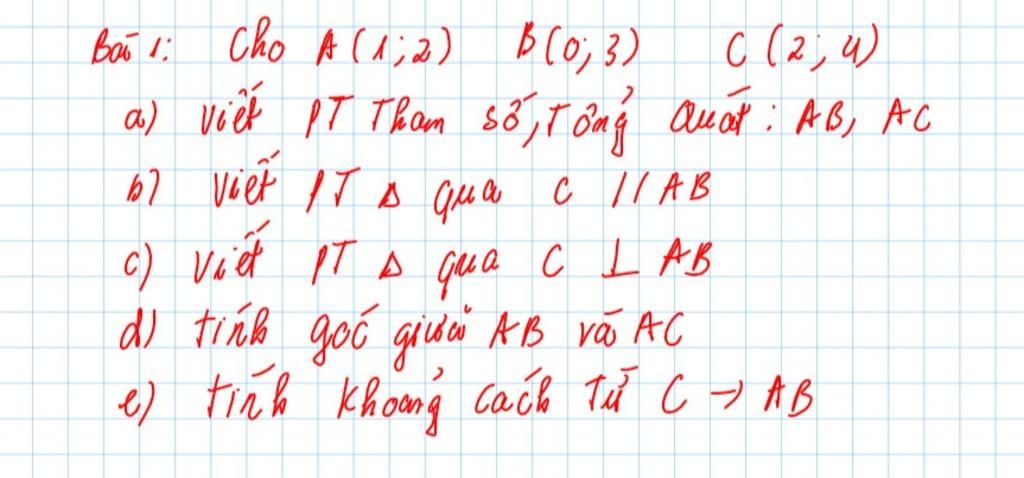 Bài 1: Cho A(1;2) B(0;3) C(2;4)
a) viết PT Tham số, Tổng Quát: AB, AC
b) viết PT Δ qua C // AB
c) viết PT Δ qua C ⊥ AB
d) tính góc giữa AB và AC
e) tính khoảng cách từ C → AB